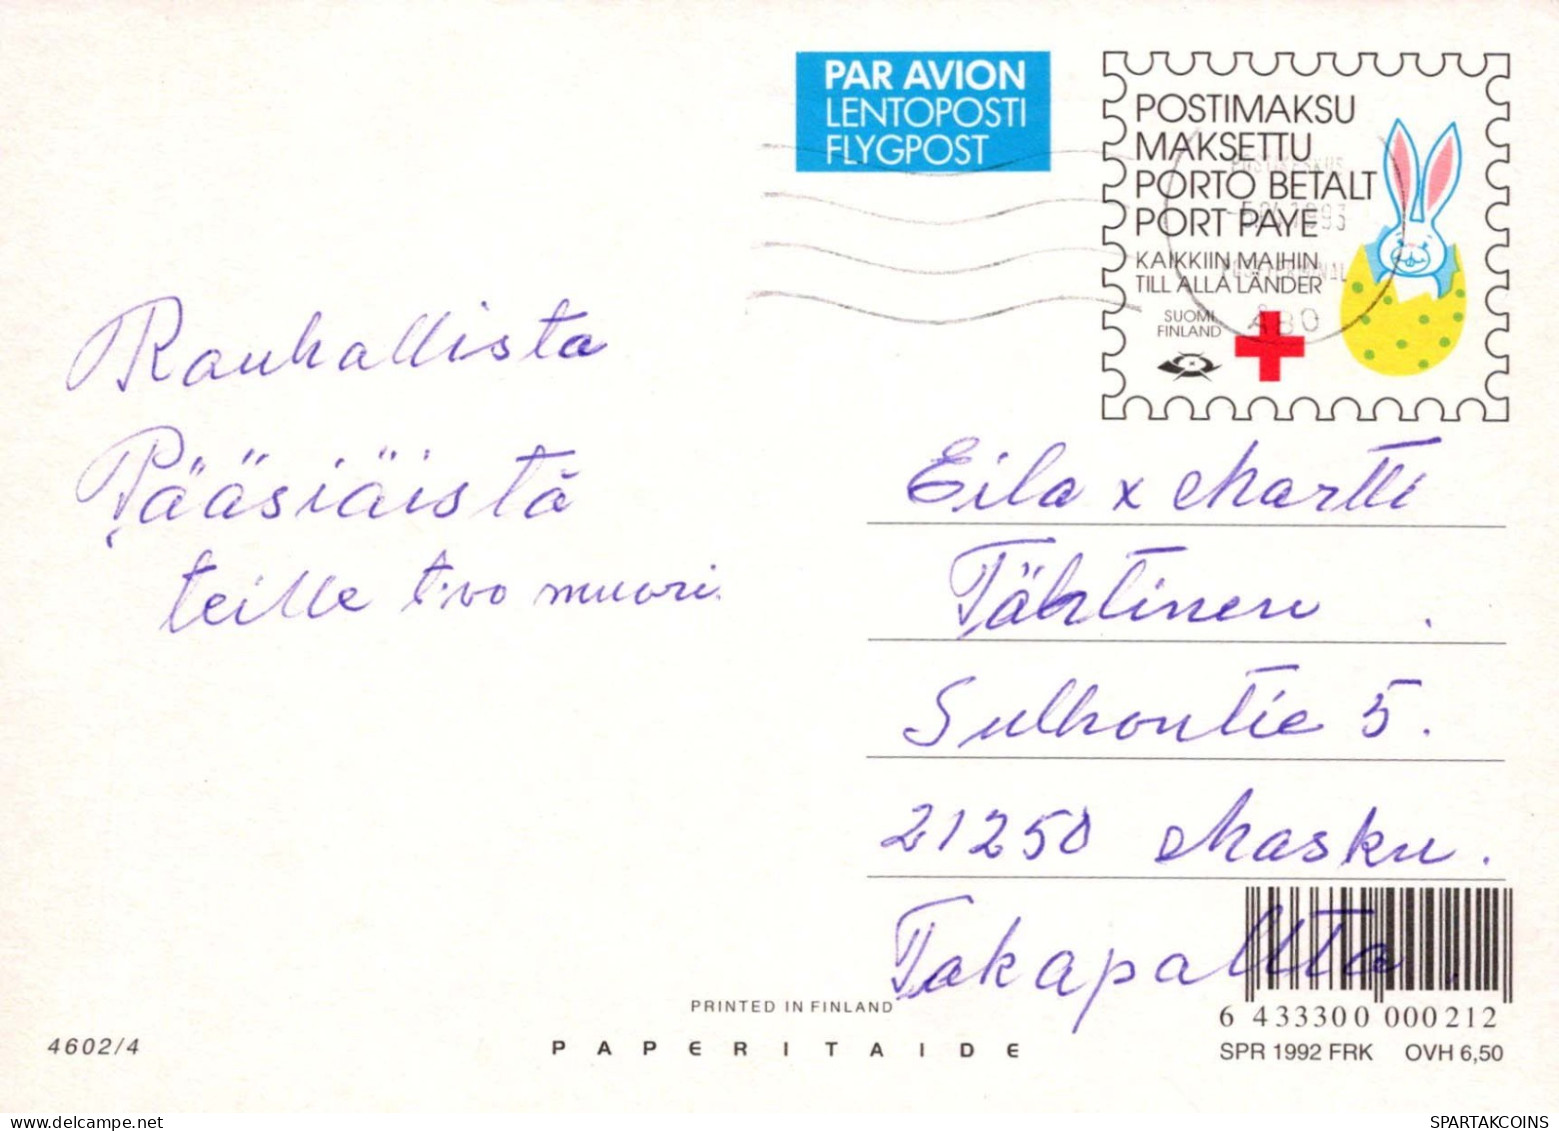 PAR AVION
LENTOPOSTI
FLYGPOST
POSTIMAKSU
MAKSETTU
PORTO BETALT
PORT PAYE
KAIKKIIN MAIHIN
TILL ALLA LÄNDER
SUOMI
FINLAND
ÅBO
Rauhallista
Pääsiäistä
teille t-vo muori
Eila x Martti
Tähtinen .
Sulhontie 5.
21250 Masku.
Takapaltta.
PRINTED IN FINLAND
4602/4
PAPERITAIDE
6 433300 000212
SPR 1992 FRK OVH 6,50
www.delcampe.net
SPARTAKCOINS